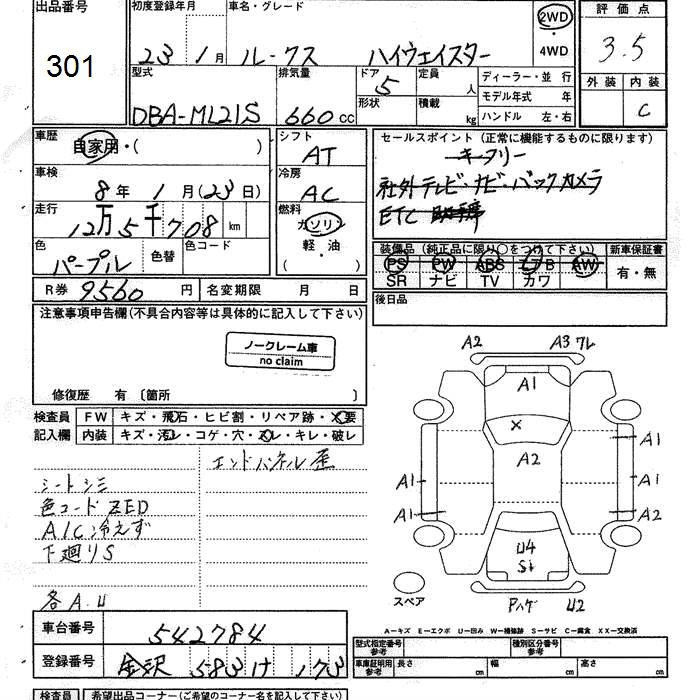 出品番号 301
初度登録年月 23 1月
車名・グレード ルークス ハイウェイスター
2WD
4WD
評価点 3.5
外装 内装 C
型式 DBA-ML21S
排気量 660cc
ドア 5
形状
定員 人
積載 kg
ディーラー・並行
モデル年式 年
ハンドル 左・右
車歴 自家用・( )
シフト AT
車検 8年 1月(23日)
冷房 AC
走行 12万5千708km
燃料 ガソリン
軽・油
( )
色 パープル 色替 色コード
R券 9560円 名変期限 月 日
セールスポイント(正常に機能するものに限ります)
キーフリー
社外テレビ・ナビ・バックカメラ
ETC
装備品(純正品に限り○をつけて下さい)
PS PW ABS エアB AW
SR ナビ TV カワ
新車保証書
有・無
後日品
注意事項申告欄(不具合内容等は具体的に記入して下さい)
ノークレーム車
no claim
修復歴 有 〔箇所 〕
検査員 FW キズ・飛石・ヒビ割・リペア跡・X要
記入欄 内装 キズ・汚レ・コゲ・穴・スレ・キレ・破レ
エンドパネル歪
シートシミ
色コード ZED
A/C冷えず
下廻りS
各A.U
A2 A3 ワレ
A1
X
A2
A1 A1
A1 A1
A1 A2
U4
S1
スペア
Pハゲ U2
A-キズ E-エクボ U-凹み W-補修跡 S-サビ C-腐食 XX-交換済
車台番号 542784
登録番号 金沢 583 け 173
型式指定番号 参考
種別区分番号 参考
車庫証明用 参考 長さ cm 幅 cm 高さ cm
検査員 希望出品コーナー(ご希望のコーナー名を記入して下さい)